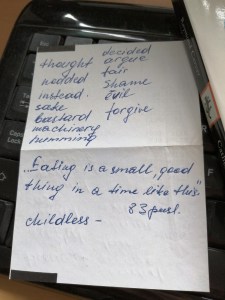 thought
wedded
instead.
sake
bastard
machinery
humming
decided
argue
fair
shame
evil
forgive
„Eating is a small, good
thing in a time like this"
83 psl.
childless –
Caps Lock